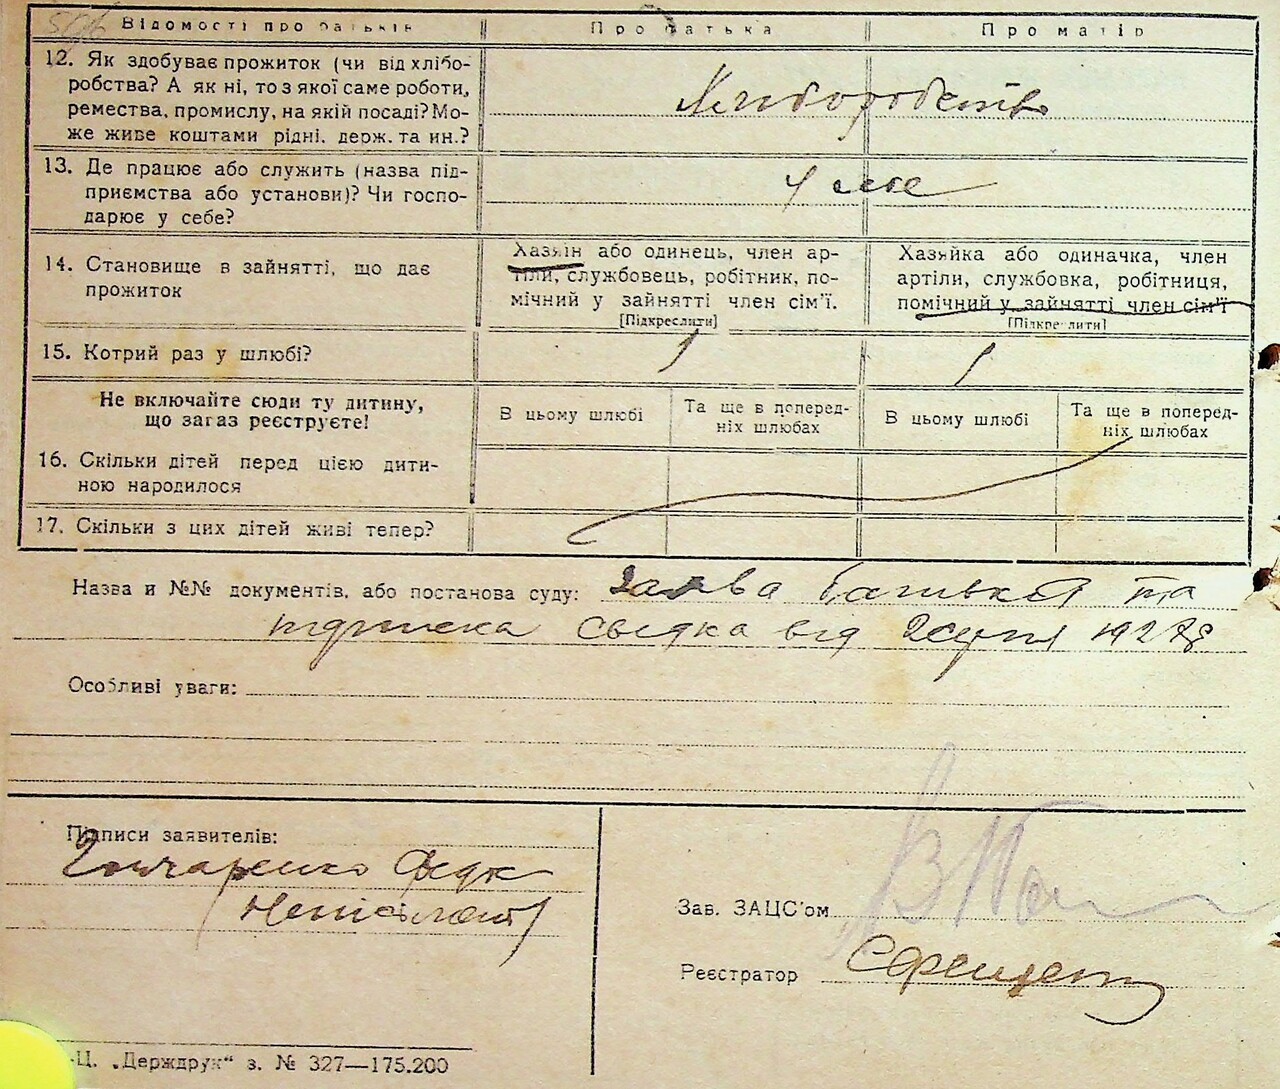 506 Відомості про батьків
Про батька
Про матір
12. Як здобуває прожиток (чи від хлібо-
робства? А як ні, то з якої саме роботи,
ремества, промислу, на якій посаді? Мо-
же живе коштами рідні, держ. та ин.?
Хліборобство
13. Де працює або служить (назва під-
приємства або установи)? Чи госпо-
дарює у себе?
У себе
14. Становище в зайнятті, що дає
прожиток
Хазяїн або одинець, член ар-
тіли, службовець, робітник, по-
мічний у зайнятті член сім'ї.
[Підкреслити]
Хазяйка або одиначка, член
артіли, службовка, робітниця,
помічний у зайнятті член сім'ї
[Підкреслити]
15. Котрий раз у шлюбі?
1
1
Не включайте сюди ту дитину,
що зараз реєструєте!
В цьому шлюбі
Та ще в поперед-
ніх шлюбах
В цьому шлюбі
Та ще в поперед-
ніх шлюбах
16. Скільки дітей перед цією дити-
ною народилося
17. Скільки з цих дітей живі тепер?
Назва и №№ документів, або постанова суду: Заява батька та
підписка свідка від
Особливі уваги:
Підписи заявителів:
Гончаренко Федк
(Неписьмен)
Зав. ЗАЦС'ом
Реєстратор
Ц. „Держдрук“ з. № 327—175.200